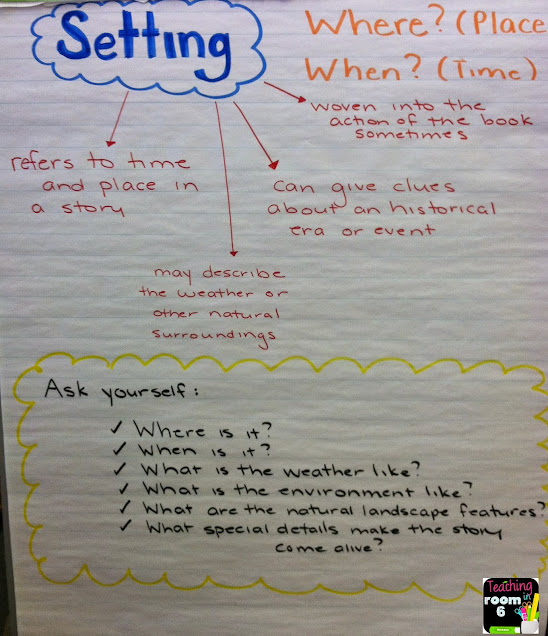 Setting
Where? (Place
When? (Time)
woven into the
action of the book
sometimes
refers to time
and place in
a story
can give clues
about an historical
era or event
may describe
the weather or
other natural
surroundings
Ask yourself:
✓ Where is it?
✓ When is it?
✓ What is the weather like?
✓ What is the environment like?
✓ What are the natural landscape features?
✓ What special details make the story
come alive?
Teaching
in
room
6